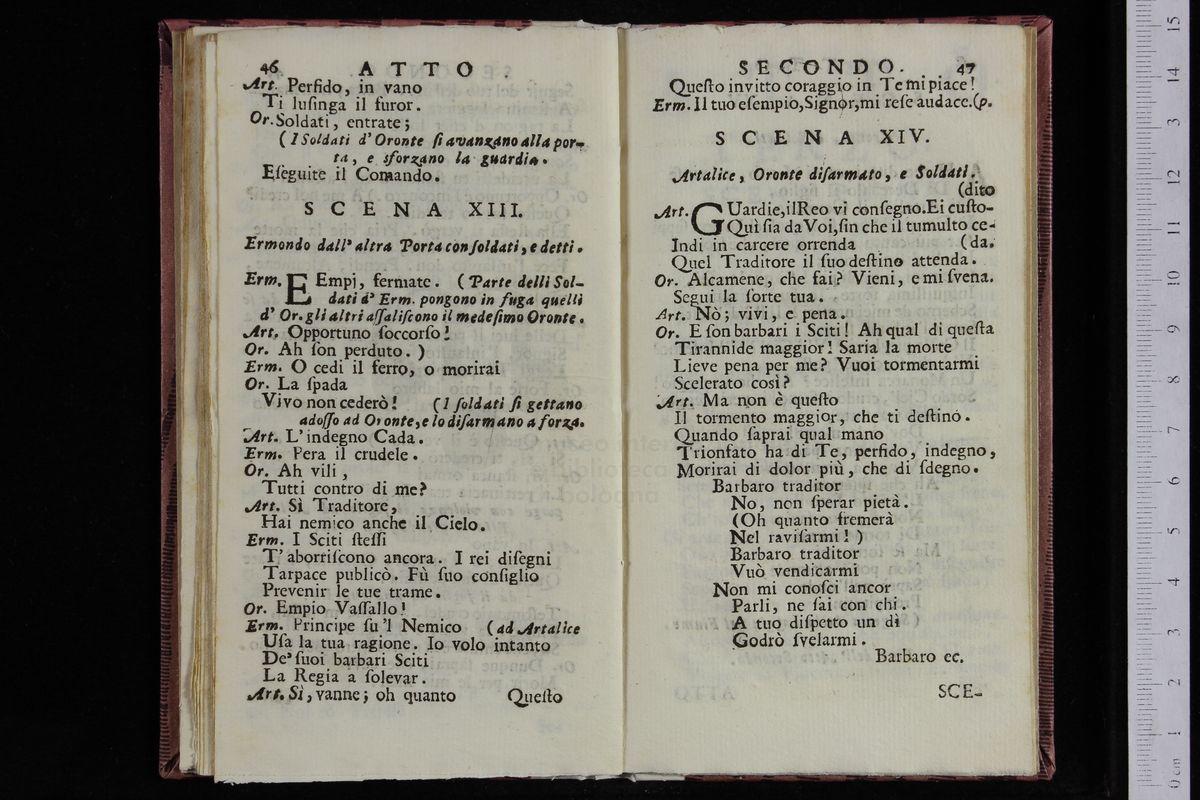 46 ATTO
Art. Perfido, in vano
Ti luſinga il furor.
Or. Soldati, entrate;
(I Soldati d' Oronte ſi avanzano alla por-
ta, e sforzano la guardia.
Eſeguite il Comando.
SCENA XIII.
Ermondo dall' altra Porta con ſoldati, e detti.
Erm. EEmpj, fermate. (Parte delli Sol-
dati d' Erm. pongono in fuga quelli
d' Or. gli altri aſſaliſcono il medeſimo Oronte.
Art. Opportuno ſoccorſo!
Or. Ah ſon perduto. )
Erm. O cedi il ferro, o morirai
Or. La ſpada
Vivo non cederò! (I ſoldati ſi gettano
adoſſo ad Oronte, e lo diſarmano a forza.
Art. L'indegno Cada.
Erm. Pera il crudele.
Or. Ah vili,
Tutti contro di me?
Art. Sì Traditore,
Hai nemico anche il Cielo.
Erm. I Sciti ſteſſi
T' aborriſcono ancora. I rei diſegni
Tarpace publicò. Fù ſuo conſiglio
Prevenir le tue trame.
Or. Empio Vaſſallo!
Erm. Principe ſu'l Nemico (ad Artalice
Uſa la tua ragione. Io volo intanto
De' ſuoi barbari Sciti
La Regia a ſolevar.
Art. Sì, vanne; oh quanto Queſto
SECONDO. 47
Queſto invitto coraggio in Te mi piace!
Erm. Il tuo eſempio, Signor, mi reſe audace. (p.
SCENA XIV.
Artalice, Oronte diſarmato, e Soldati.
(dito
Art. GUardie, il Reo vi conſegno. Ei cuſto-
Quì ſia da Voi, ſin che il tumulto ce-
Indi in carcere orrenda (da.
Quel Traditore il ſuo deſtino attenda.
Or. Alcamene, che fai? Vieni, e mi ſvena.
Segui la ſorte tua.
Art. Nò; vivi, e pena.
Or. E ſon barbari i Sciti! Ah qual di queſta
Tirannide maggior! Saria la morte
Lieve pena per me? Vuoi tormentarmi
Scelerato così?
Art. Ma non è queſto
Il tormento maggior, che ti deſtino.
Quando ſaprai qual mano
Trionfato ha di Te, perfido, indegno,
Morirai di dolor più, che di ſdegno.
Barbaro traditor
No, non ſperar pietà.
(Oh quanto fremerà
Nel raviſarmi! )
Barbaro traditor
Vuò vendicarmi
Non mi conoſci ancor
Parli, ne ſai con chi.
A tuo diſpetto un dì
Godrò ſvelarmi.
Barbaro ec.
SCE-